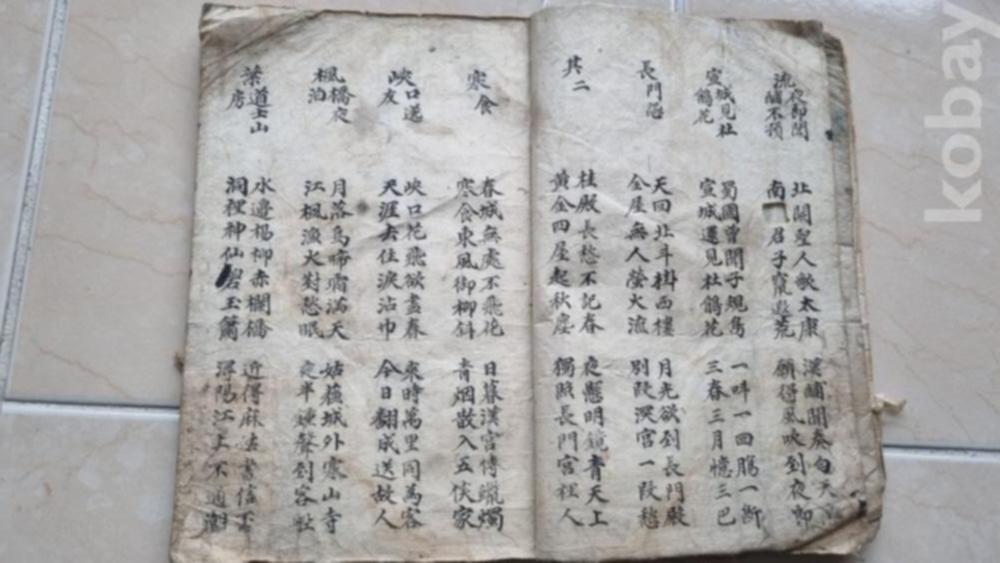 流夜郎聞
酺不預
北闕聖人歌太康
南君子竄遐荒
漢酺聞奏勻天
願得風吹到夜郎
宣城見杜
鵑花
蜀國曾聞子規鳥
宣城還見杜鵑花
一叫一回腸一斷
三春三月憶三巴
長門怨
天回北斗掛西樓
金屋無人螢火流
月光欲到長門殿
別深宮一段愁
其二
桂殿長愁不記春
黃金四屋起秋塵
夜懸明鏡青天上
獨照長門宮裡人
寒食
春城無處不飛花
寒食東風御柳斜
日暮漢宮傳蠟燭
青烟散入五侯家
峽口送
友
峽口花飛欲盡春
天涯去住淚沾巾
來時萬里同萬客
今日翻成送故人
楓橋夜
泊
月落烏啼霜滿天
江楓漁火對愁眠
姑蘇城外寒山寺
夜半鍾聲到客船
葉道士山
房
水邊楊柳赤欄橋
洞裡神仙碧玉簫
近得麻姑書信否
潯陽江上不通潮
kobay